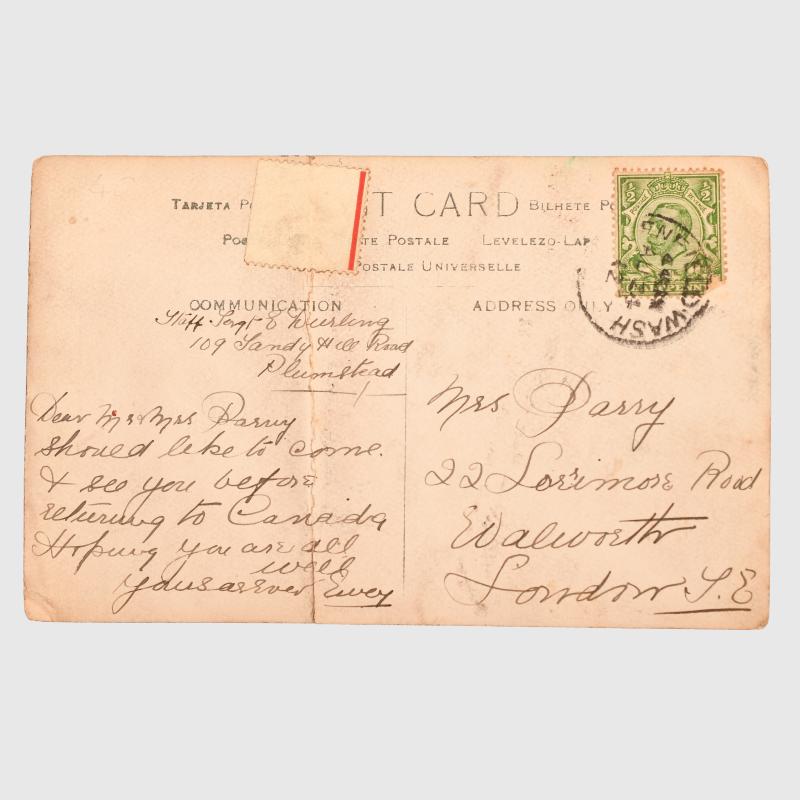 TARJETA PO
T CARD
BILHETE PO
POS
TE POSTALE
LEVELEZO-LAP
POSTALE UNIVERSELLE
COMMUNICATION
ADDRESS ONLY
Staff. Sergt E Durling
109 Sandy Hill Road
Plumstead
Dear Mr & Mrs Darry
should like to come.
& see you before
returning to Canada
Hoping you are all
well
Yours as ever Ewey
1/2 1/2
POSTAGE REVENUE
Mrs Darry
22 Lorrimore Road
Walworth
London S.E